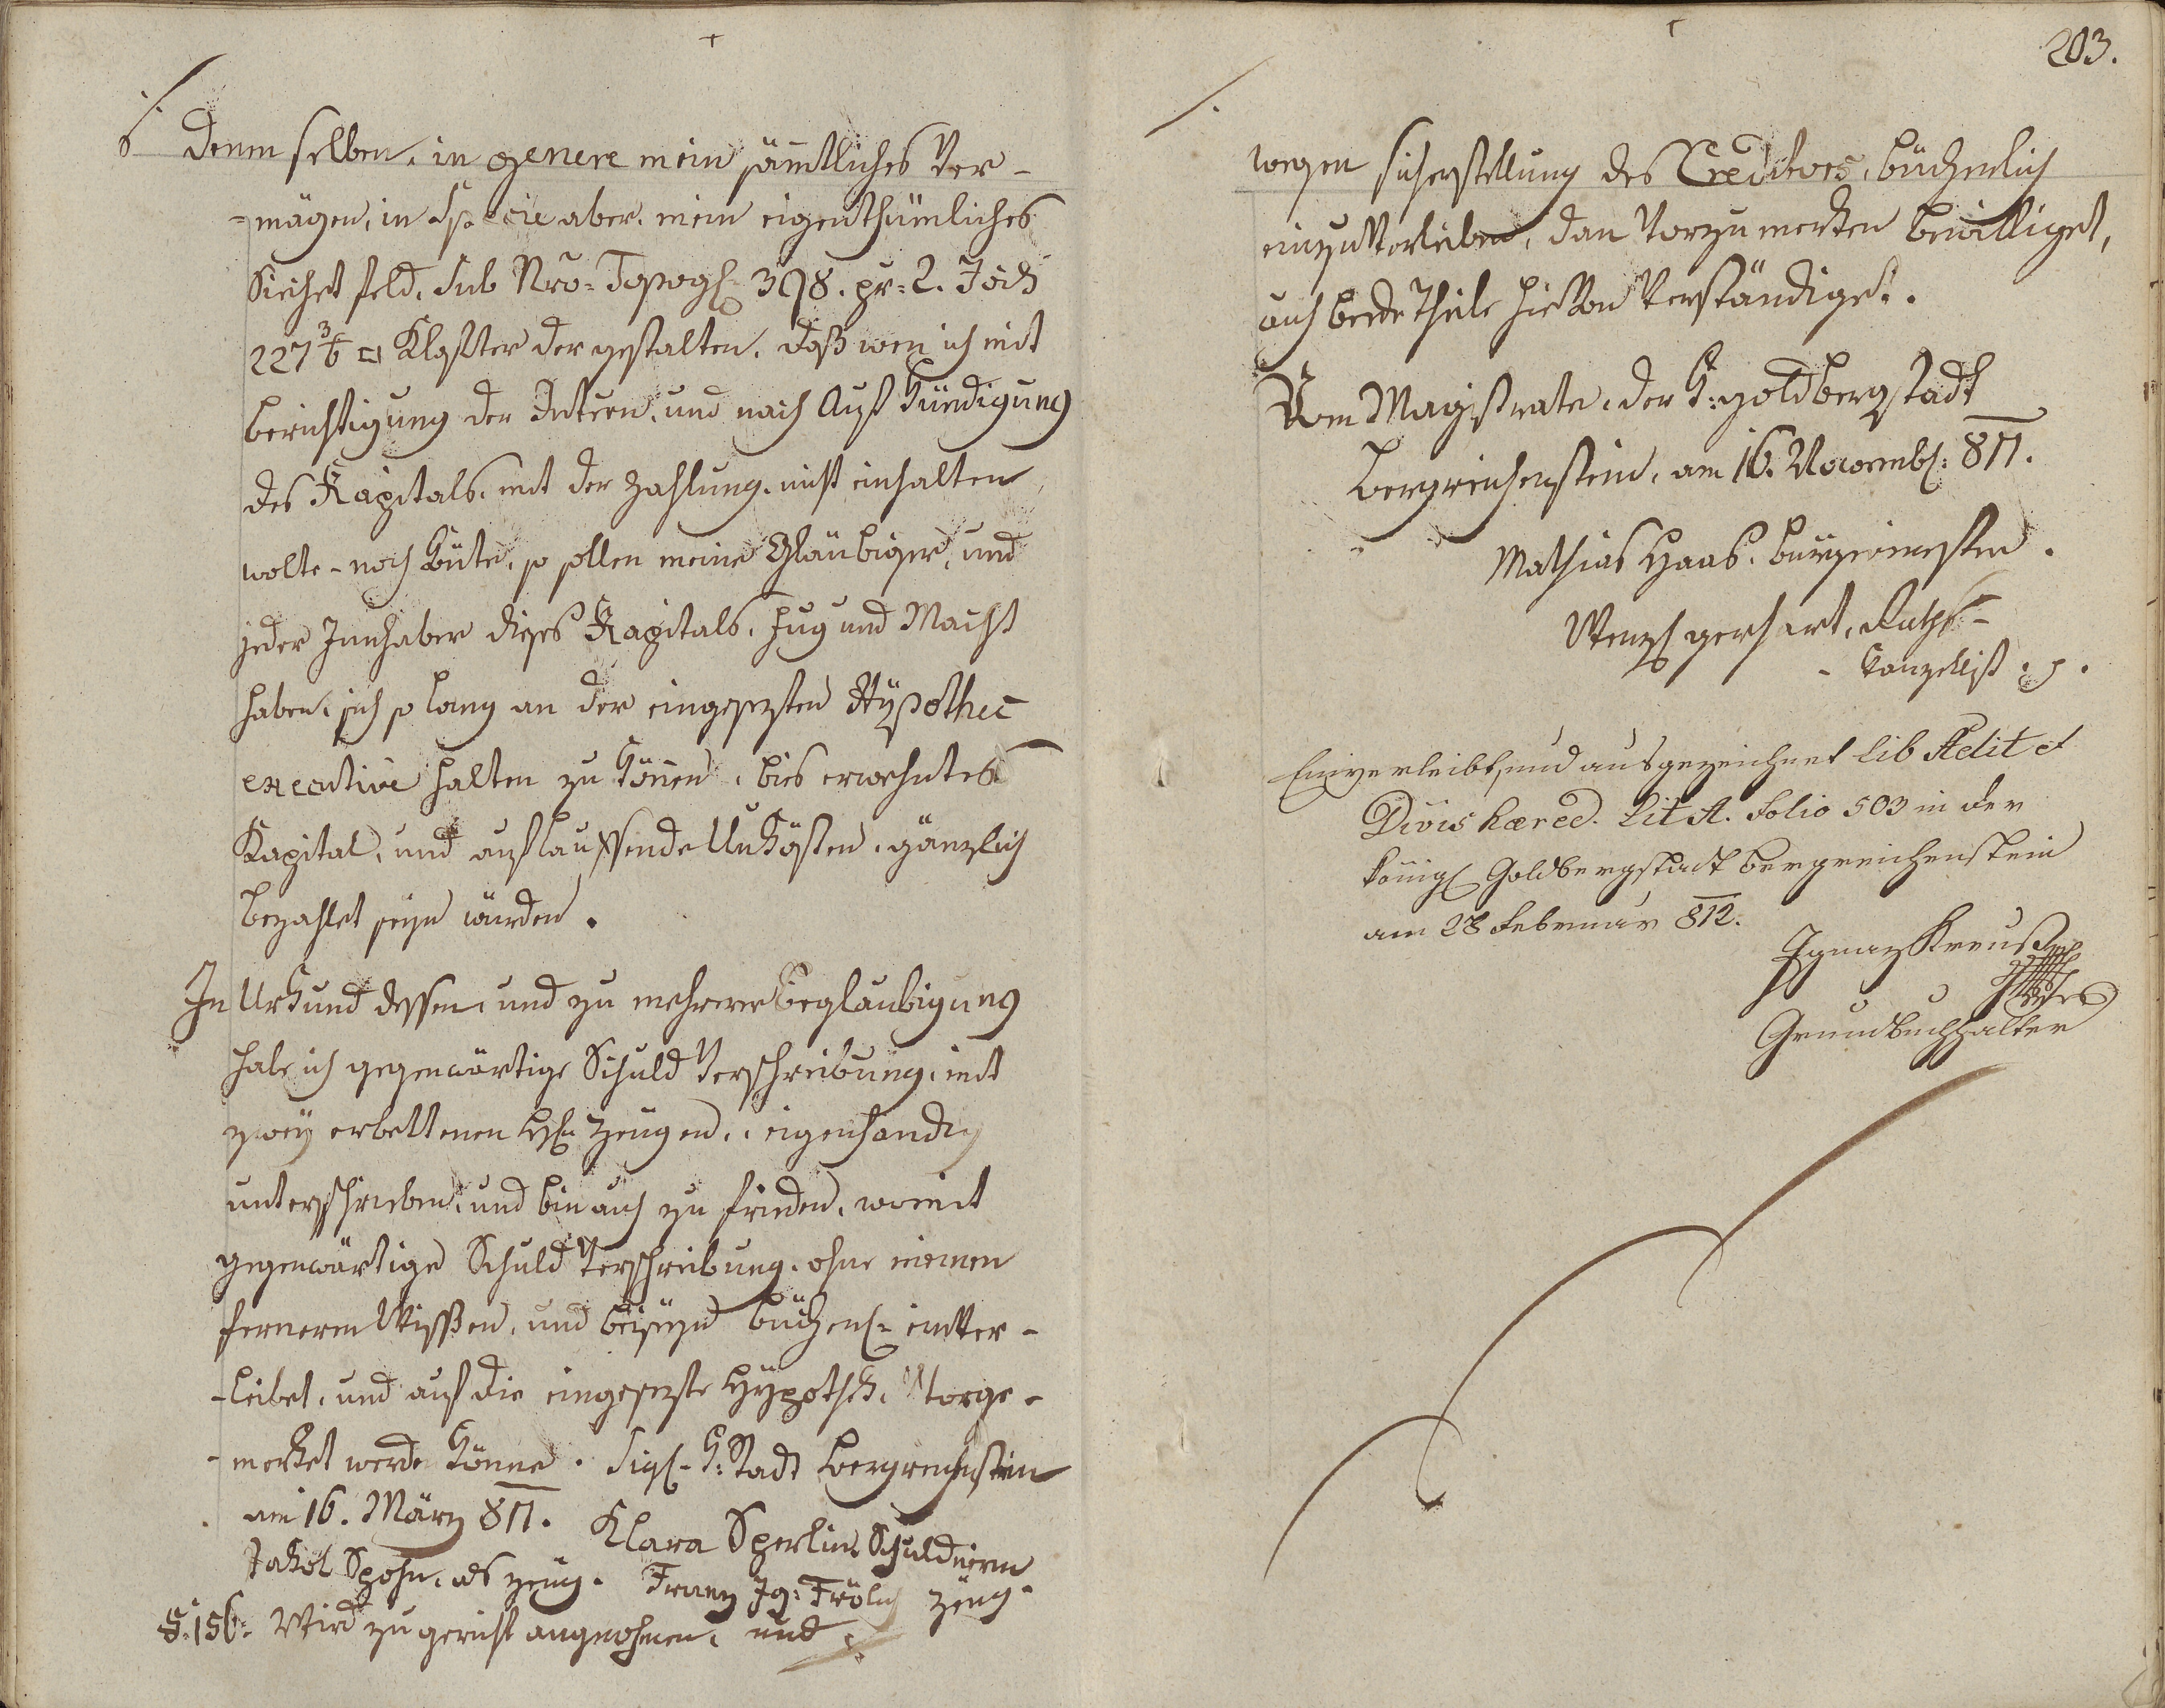 denenselben, in genere mein sämtliches Ver-
-mögen, in Specie aber, mein eigenthümliches
feld, sub Nrō= Topogh= 398. pr= 2. Joch
227 3/6 □ Klafter dergestalten, daß wen ich mit
berichtigung der Intreßen, und nach Aufkündigung
des Kapitals, mit der Zahlung, nicht einhalten
wolte - noch könte, so sollen meine Gläubiger, und
jeder Innhaber dieses Kapitals, fug und Macht
haben, sich so lang an der eingesezten Hÿpothec
executive halten zu können, bis erwehntes
Kapital, und auflauffende Unkösten, gänzlich
bezahlet seÿn würden.
In Urkund dessen, und zu mehrerer Beglaubigung
habe ich gegenwärtige Schuld Verschreibung, mit
zweÿ erbettenen H: Zeugen, eigenhändig
unterschrieben, und bin auch zu frieden, womit
gegenwärtige Schuld Verschreibung, ohne meinen
ferneren Wissen, und beÿseÿn bücherl= einver-
-leibet, und auf die eingesezte Hÿpothek, Vorge-
-merket werde könne. Sigl- K: Stadt Bergreichenstein
am 16. März 811. Klara Sperlin Schuldnerin
Jakob Spohn, als zeug. Franz Ig: Frölich zeug.
§: 156: Wird zu gericht angenohmen, und
203.
wegen sicherstellung des Creditors, bücherlich
einzuVerleiben, dan Vorzumerken bewilliget,
auch beede Theile hieVon Verständiget.
Vom Magistrate, der K: goldbergstadt
Bergreichenstein, am 16. Novembl: 811.
Mathias Haas, burgermeister.
Wenzl gerhart, Raths-
-kanzellist. 
Einverleibt, und ausgezeichnet Lib Aedit et
Divis haered. Lit A. Folio 503 in der
königl Goldbergstadt Bergreichenstein
am 28 Februar 812.
Ignaz Kreuß
Grundbuchhalter